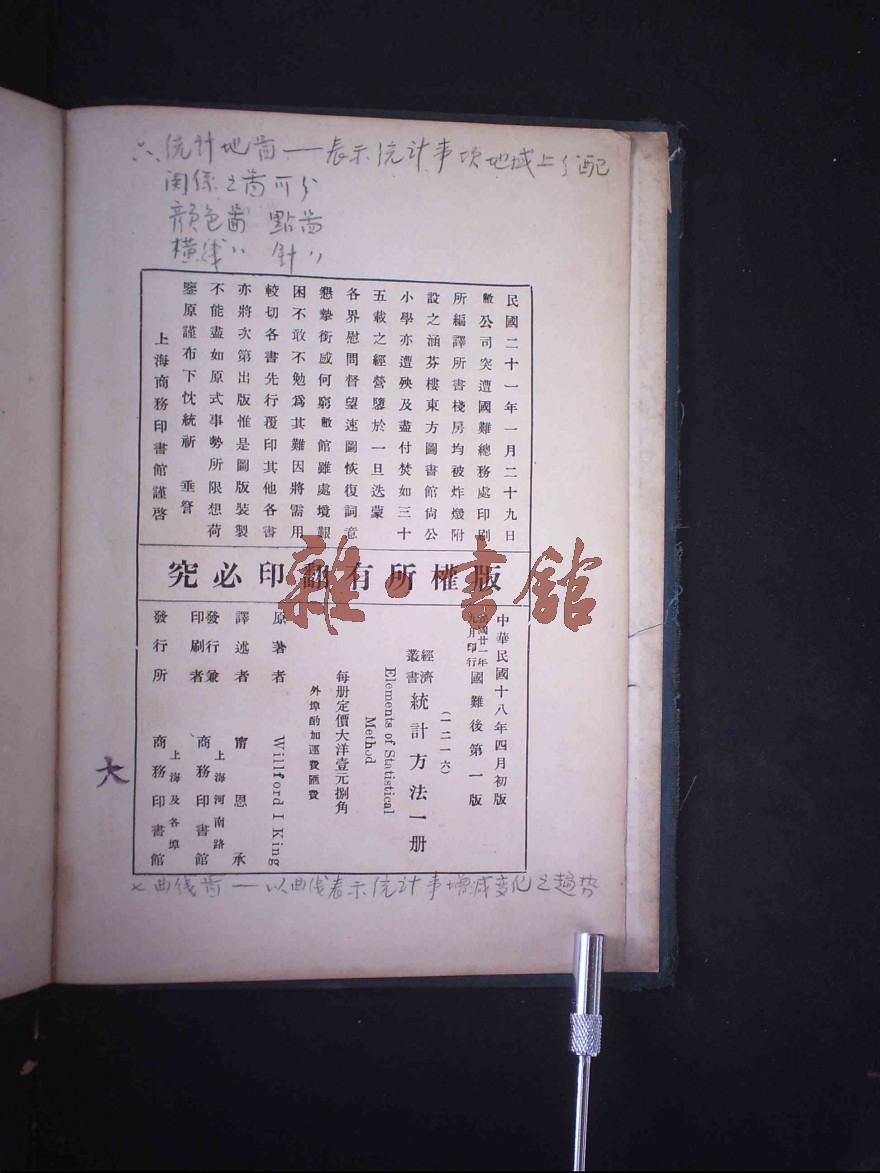 六、統計地啚——表示統計事項地域上分配
関係之啚可分
顏色啚 點啚
橫线〃 針〃
民國二十一年一月二十九日
敝公司突遭國難總務處印刷
所編譯所書棧房均被炸燬附
設之涵芬樓東方圖書館尙公
小學亦遭殃及盡付焚如三十
五載之經營隳於一旦迭蒙
各界慰問督望速圖恢復詞意
懇摯銜感何窮敝館雖處境艱
困不敢不勉爲其難因將需用
較切各書先行覆印其他各書
亦將次第出版惟是圖版裝製
不能盡如原式事勢所限想荷
鑒原謹布下忱統祈 垂詧
上海商務印書館謹啓
版權所有翻印必究
中華民國十八年四月初版
民國廿一年九月印行國難後第一版
(一二一六)
經濟叢書 統計方法一册
Elements of Statistical
Method
每册定價大洋壹元捌角
外埠酌加運費匯費
原著者 Willford I King
譯述者 甯恩承
發行兼印刷者 上海河南路 商務印書館
發行所 上海及各埠 商務印書館
大
七 曲线啚——以曲线表示統計事增減变化之趨势
雜·書館